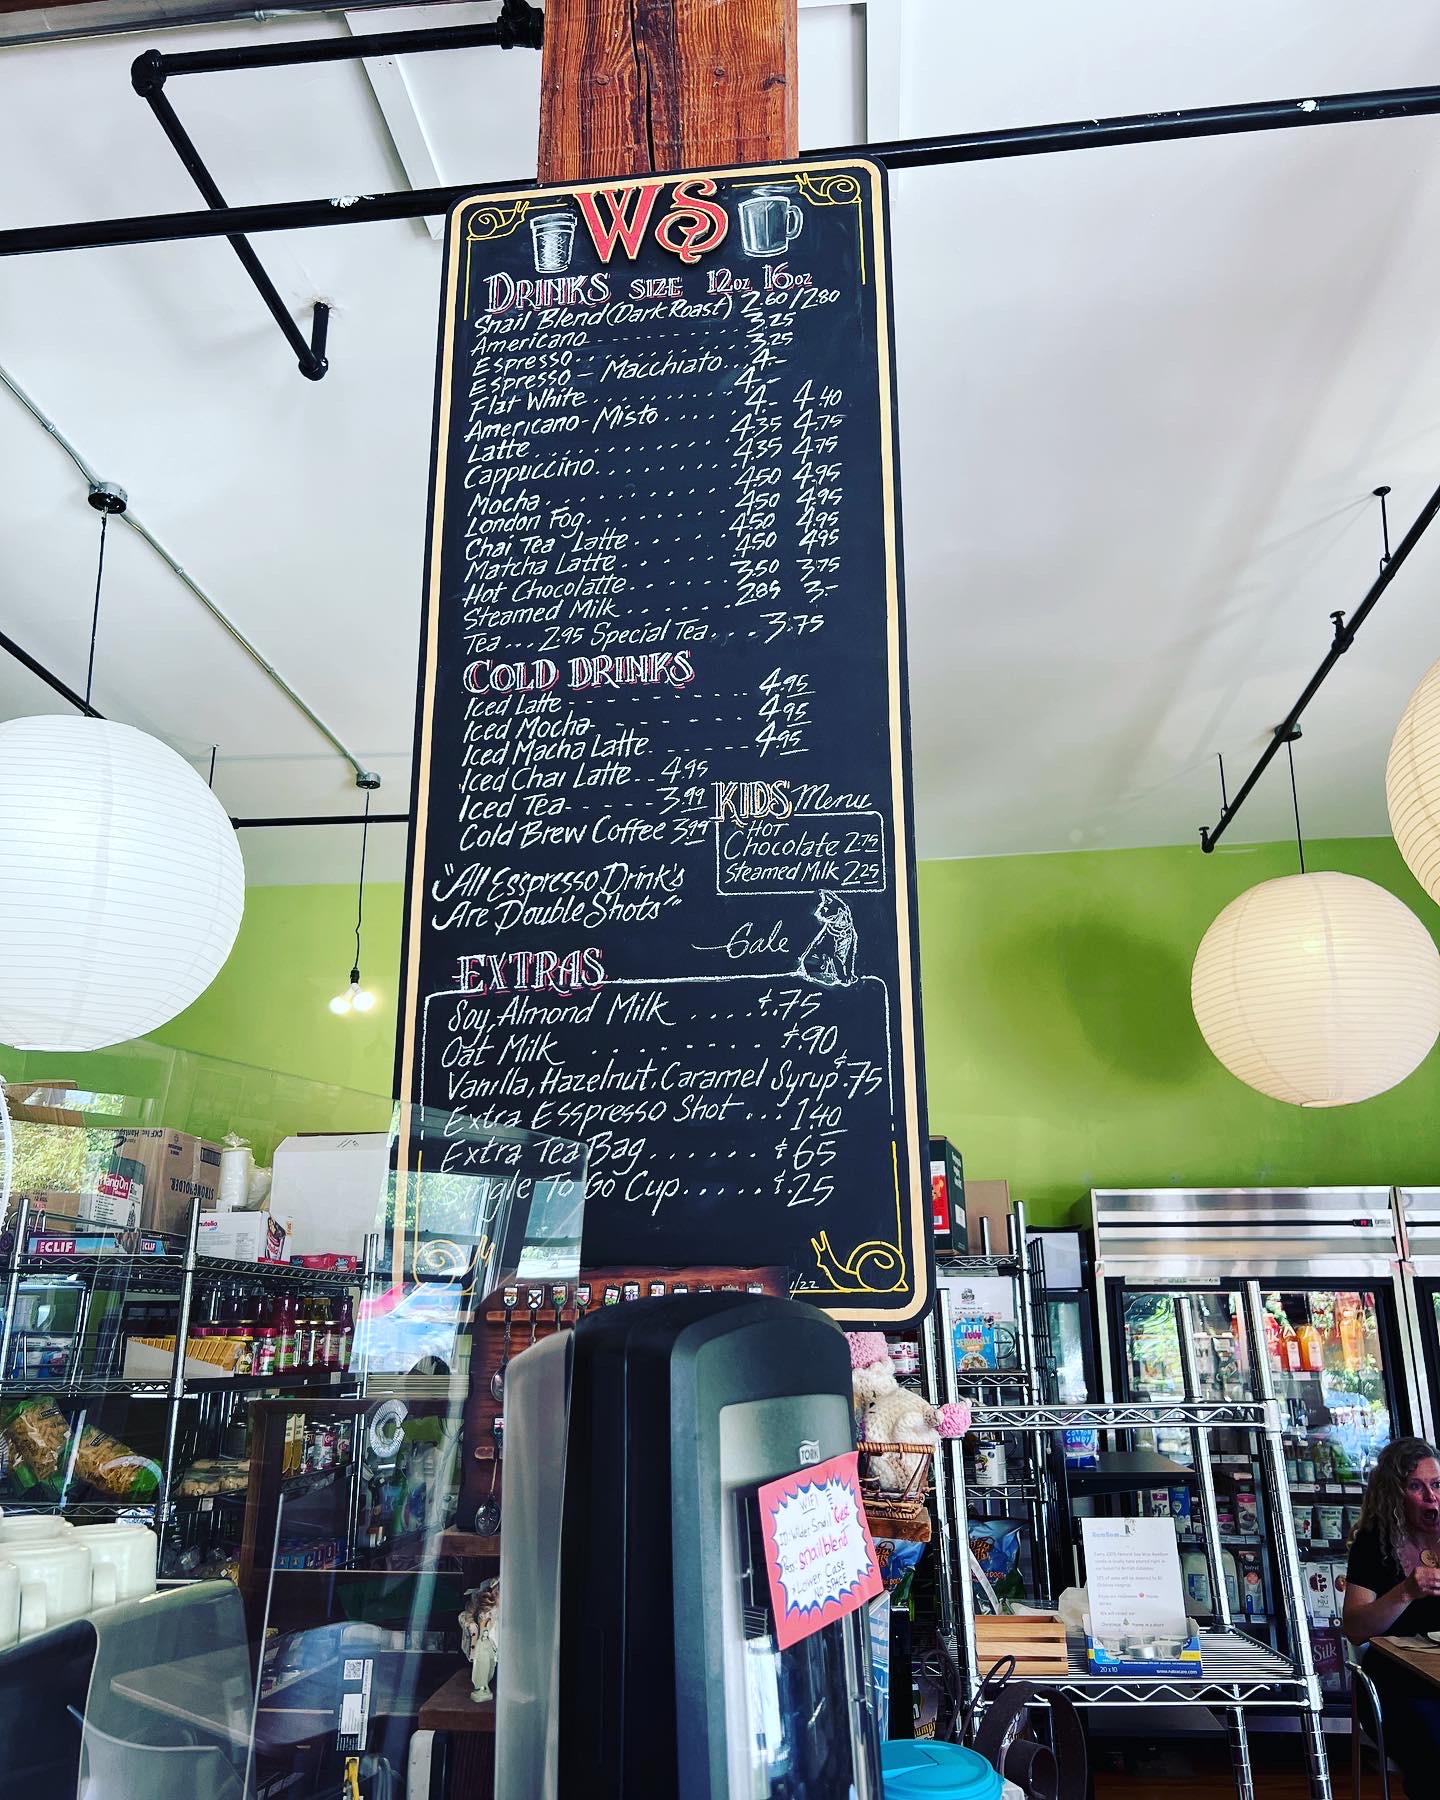 WS
DRINKS SIZE 12oz 16oz
Snail Blend (Dark Roast) 2.60/2.80
Americano 3.25
Espresso 3.25
Espresso - Macchiato 4.-
Flat White 4.-
Americano-Misto 4.- 4.40
Latte 4.35 4.75
Cappuccino 4.35 4.75
Mocha 4.50 4.95
London Fog 4.50 4.95
Chai Tea Latte 4.50 4.95
Matcha Latte 4.50 4.95
Hot Chocolatte 3.50 3.75
Steamed Milk 2.85 3.-
Tea... 2.95 Special Tea... 3.75
COLD DRINKS
Iced Latte 4.95
Iced Mocha 4.95
Iced Macha Latte 4.95
Iced Chai Latte 4.95
Iced Tea 3.99
Cold Brew Coffee 3.99
KIDS Menu
HOT
Chocolate 2.75
Steamed Milk 2.25
"All Esspresso Drink's
Are Double Shots"
Gale
EXTRAS
Soy, Almond Milk ....¢.75
Oat Milk ........ ¢.90
Vanilla, Hazelnut, Caramel Syrup ¢.75
Extra Esspresso Shot... 1.40
Extra Tea Bag...... ¢65
Single To Go Cup..... ¢.25
/22
TORK
WIFI
ID: Wilder Snail Guest
Pass: snailblend
Lower Case
NO SPACE
CLIF
CLIF
nutella
STRONGHOLDER
HangOn
COTTON CANDY
20 x 10
Silk
kiju